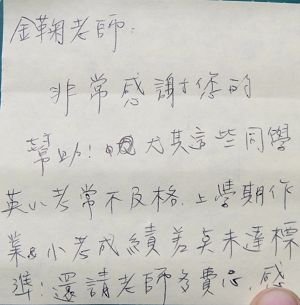 金鞠老師:
非常感謝您的
幫助! 尤其這些同學
英小老常不及格.上學期作
業&小考成績差點未達標
準,還請老師多費心.感